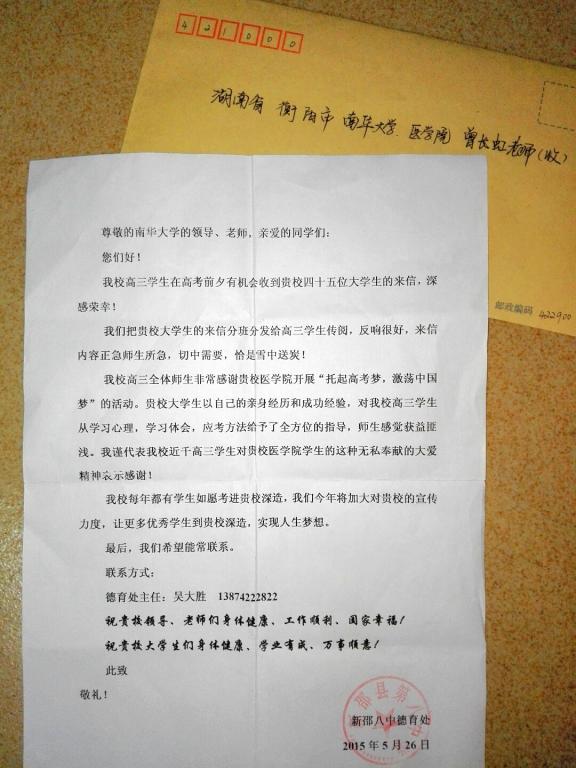 421000
湖南省 衡阳市 南华大学 医学院 曾长虹老师(收)
邮政编码 422900
尊敬的南华大学的领导、老师，亲爱的同学们：
您们好！
我校高三学生在高考前夕有机会收到贵校四十五位大学生的来信，深
感荣幸！
我们把贵校大学生的来信分班分发给高三学生传阅，反响很好，来信
内容正急师生所急，切中需要，恰是雪中送炭！
我校高三全体师生非常感谢贵校医学院开展“托起高考梦，激荡中国
梦”的活动。贵校大学生以自己的亲身经历和成功经验，对我校高三学生
从学习心理，学习体会，应考方法给予了全方位的指导，师生感觉获益匪
浅。我谨代表我校近千高三学生对贵校医学院学生的这种无私奉献的大爱
精神表示感谢！
我校每年都有学生如愿考进贵校深造，我们今年将加大对贵校的宣传
力度，让更多优秀学生到贵校深造，实现人生梦想。
最后，我们希望能常联系。
联系方式：
德育处主任：吴大胜 13874222822
祝贵校领导、老师们身体健康、工作顺利、阖家幸福！
祝贵校大学生们身体健康、学业有成、万事顺意！
此致
敬礼！
新邵八中德育处
2015 年 5 月 26 日